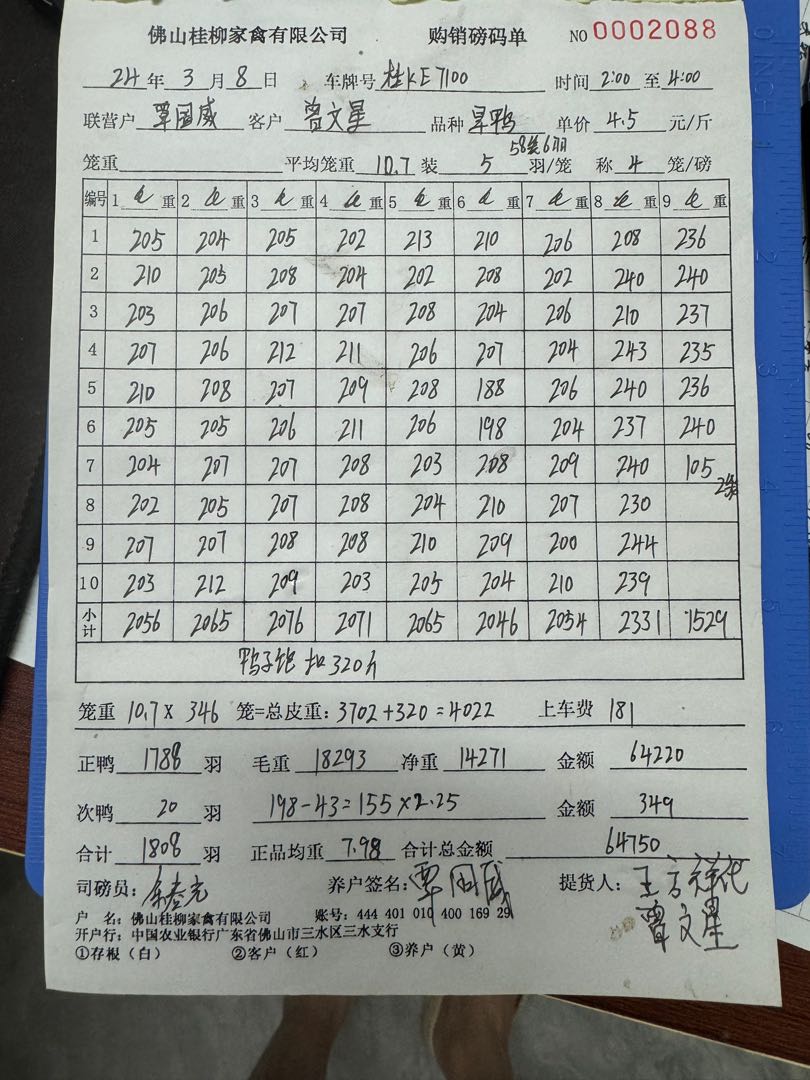 佛山桂柳家禽有限公司 购销磅码单 NO 0002088
24 年 3 月 8 日 车牌号 桂KE7100 时间 2:00 至 4:00
联营户 覃国威 客户 曾文星 品种 旱鸭 单价 4.5 元/斤
58笼6羽
笼重 平均笼重 10.7 装 5 羽/笼 称 4 笼/磅
编号 1 毛 重 2 毛 重 3 毛 重 4 毛 重 5 毛 重 6 毛 重 7 毛 重 8 毛 重 9 毛 重
1 205 204 205 202 213 210 206 208 236
2 210 205 208 204 202 208 202 240 240
3 203 206 207 207 208 204 206 210 237
4 207 206 212 211 206 207 204 243 235
5 210 208 207 209 208 188 206 240 236
6 205 205 206 211 206 198 204 237 240
7 204 207 207 208 203 208 209 240 105
2笼
8 202 205 207 208 204 210 207 230
9 207 207 208 208 210 209 200 244
10 203 212 209 203 205 204 210 239
小计 2056 2065 2076 2071 2065 2046 2054 2331 1529
鸭子饱 扣320斤
笼重 10.7 X 346 笼=总皮重: 3702+320=4022 上车费 181
正鸭 1788 羽 毛重 18293 净重 14271 金额 64220
次鸭 20 羽 198-43=155×2.25 金额 349
合计 1808 羽 正品均重 7.98 合计总金额 64750
司磅员: 养户签名: 覃国威 提货人:
曾文星
户 名: 佛山桂柳家禽有限公司 账号: 444 401 010 400 169 29
开户行: 中国农业银行广东省佛山市三水区三水支行
①存根(白) ②客户(红) ③养户(黄)